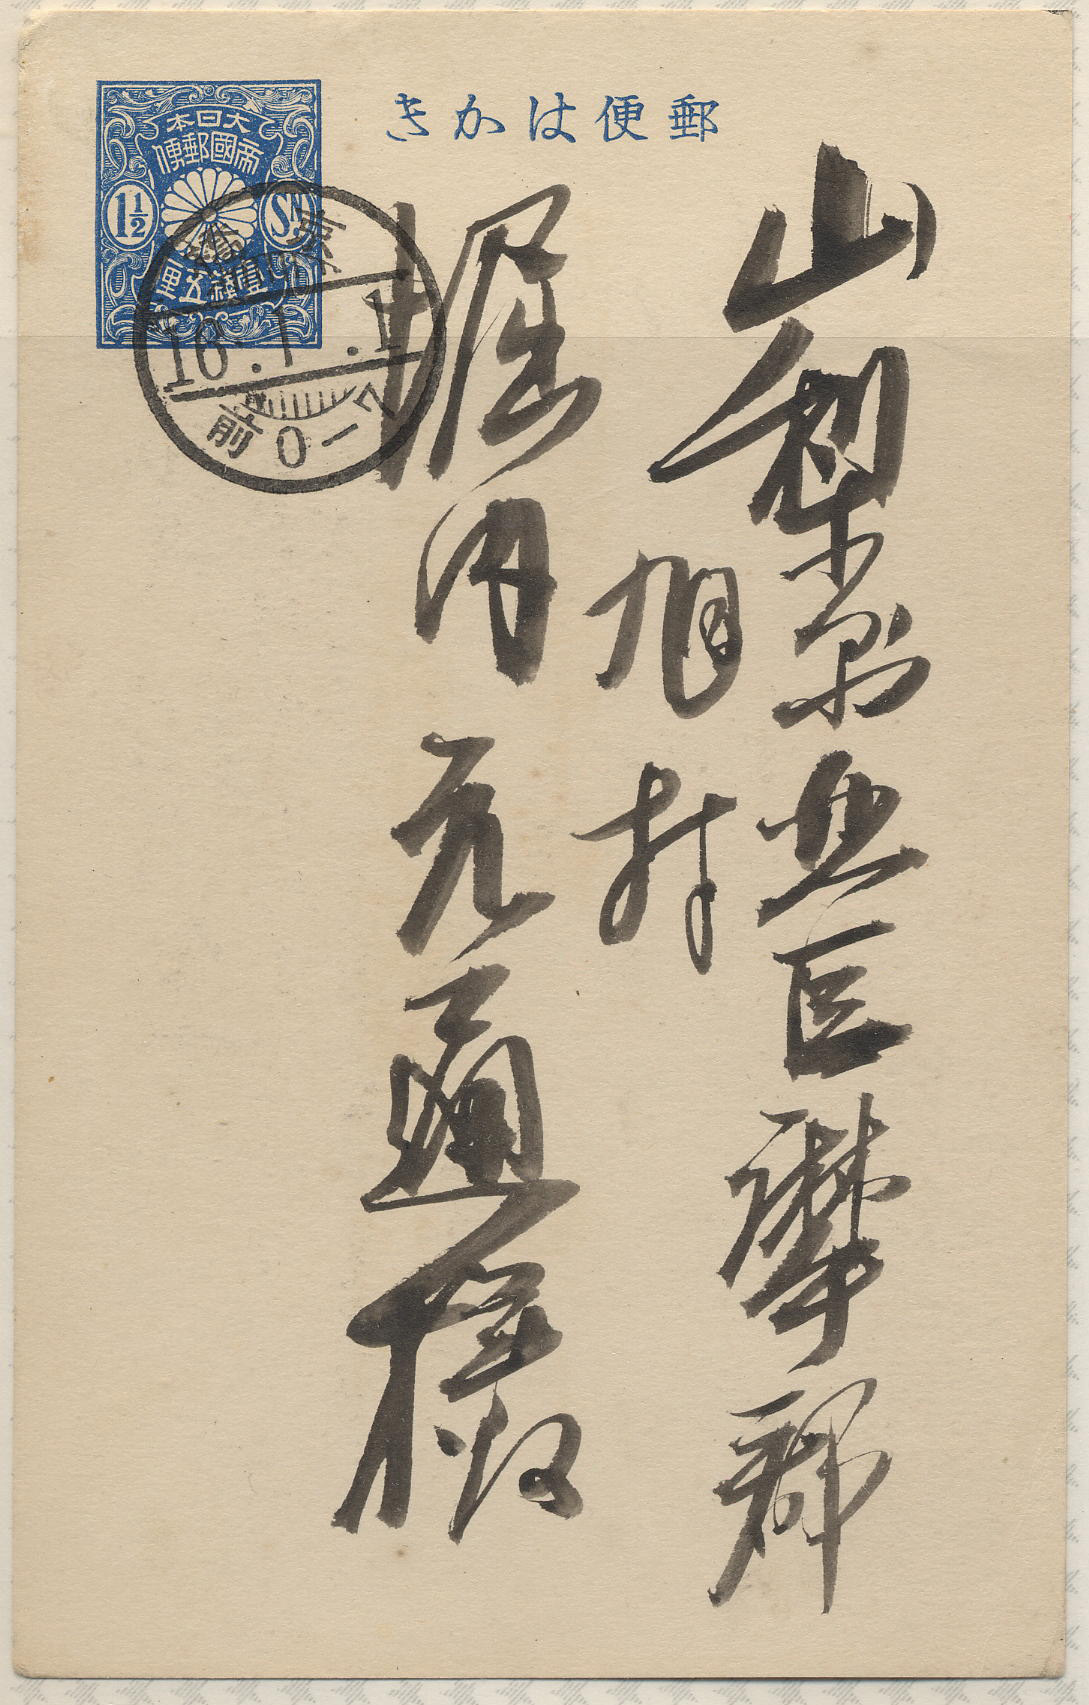 郵便はかき
大日本
帝國郵便
1½ Sn
壹錢五厘
16.1.1
前0-7
山梨県北巨摩郡
旭村
堀内元通様